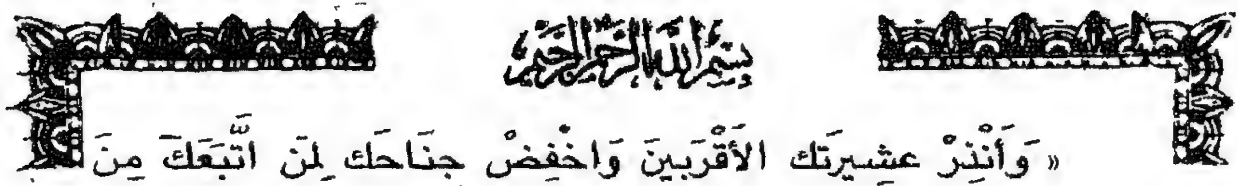 بسم الله الرحمن الرحيم
« وَأَنْذِرْ عشِيرتَك الأَقْرَبينَ وَاخْفِضْ جنَاحَك لِمَن اتَّبَعَكَ مِنَ